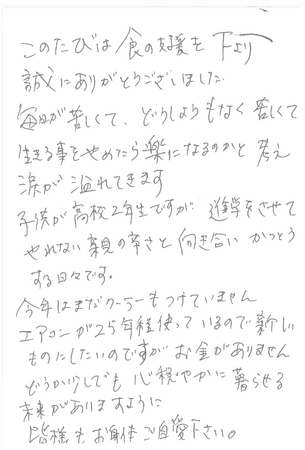 このたびは食の支援を下より
誠にありがとうございました
毎日が苦しくて、どうしようもなく苦しくて
生きる事をやめたら楽になるのかと考え
涙が溢れてきます
子供が高校2年生ですが 進学をさせて
やれない親の辛さと向き合い かっとう
する日々です。
今年はまだクーラーもつけていません
エアコンが25年経使っているので新しい
ものにしたいのですが お金がありません
どうか少しでも心穏やかに暮らせる
未来がありますように
皆様もお身体ご自愛下さい。